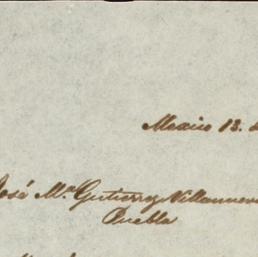 Mexico 13. d
José Ma. Gutierrez Villanueva
Puebla